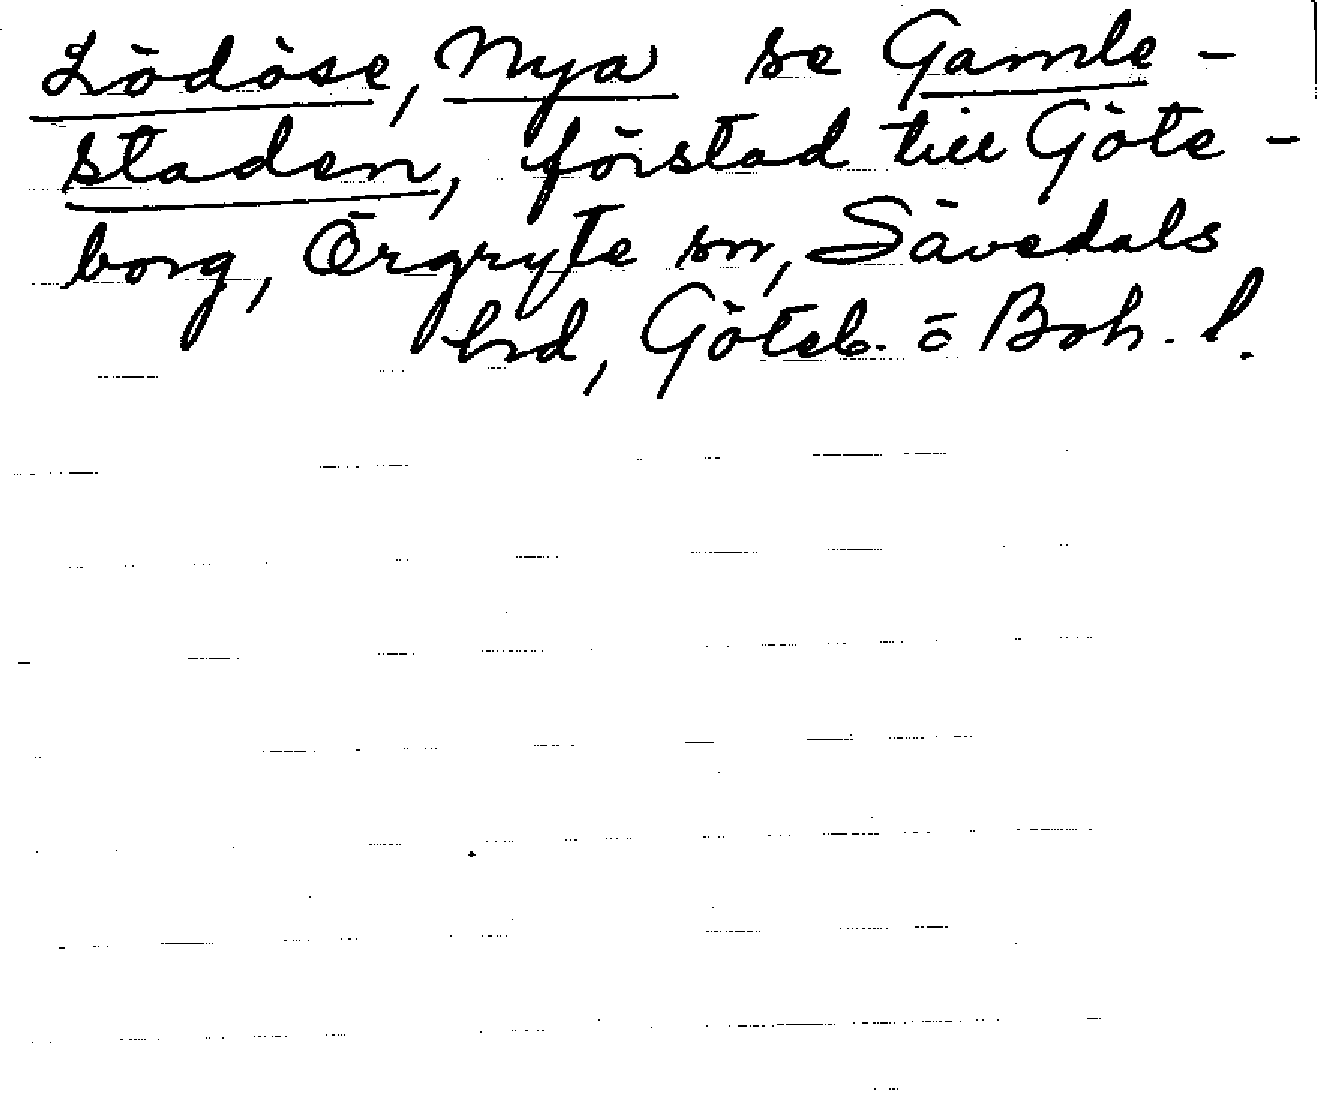 Lödöse, Nya se Gamle-
staden, förstad till Göte-
borg, Örgryte sn, Sävedals
hrd, Göteb. o Boh. l.